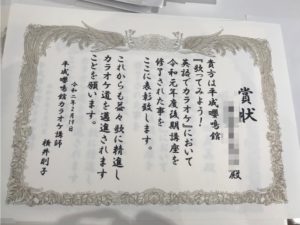 賞状
殿
貴方は平成嚶鳴館
『歌ってみよう!
英語でカラオケ』において
令和元年度後期講座を
修了された事を
ここに表彰致します。
これからも益々歌に精進し
カラオケ道を邁進されます
ことを願います。
令和二年2月19日
平成嚶鳴館カラオケ講師
横井則子